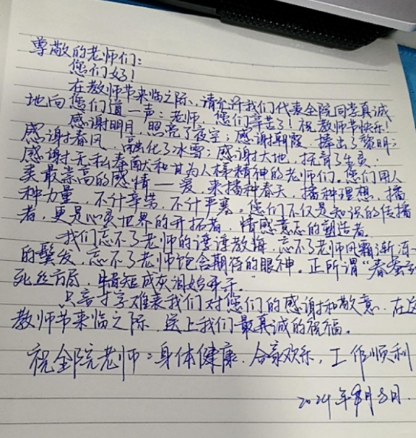 尊敬的老师们:
您们好!
在教师节来临之际、请允许我们代表全院同学真诚
地向您们道一声:老师,您们辛苦了!祝教师节快乐!
感谢明月,照亮了夜空;感谢朝霞,捧出了黎明;
感谢春风,融化了冰雪;感谢大地,抚育了生灵
感谢无私奉献和甘为人梯精神的老师们,您们用人
类最崇高的感情一爱,来播种春天,播种理想,播
种力量,不计辛苦,不计严寒,您们不仅是知识的传播
者,更是心灵世界的开拓者,情感意志的塑造者
我们忘不了老师的谆谆教诲,忘不了老师渐渐
的鬓发,忘不了老师饱含期待的眼神。正所谓"春蚕到
死丝方尽,蜡炬成灰泪始干"
只言片字难表我们对您们的感谢和敬意,在这
教师节来临之际,送上我们最真诚的祝福。
祝全院老师:身体健康,合家欢乐,工作顺利
2024年月日.